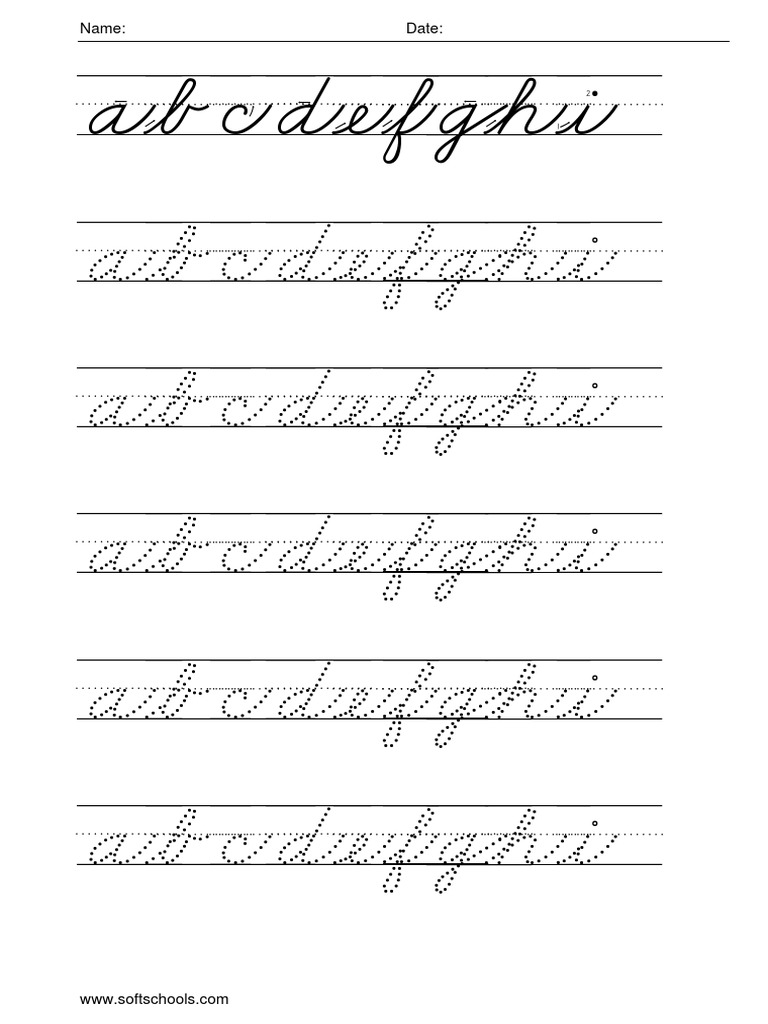 Name: Date:
a b c d e f g h i
a b c d e f g h i
a b c d e f g h i
a b c d e f g h i
a b c d e f g h i
a b c d e f g h i
www.softschools.com